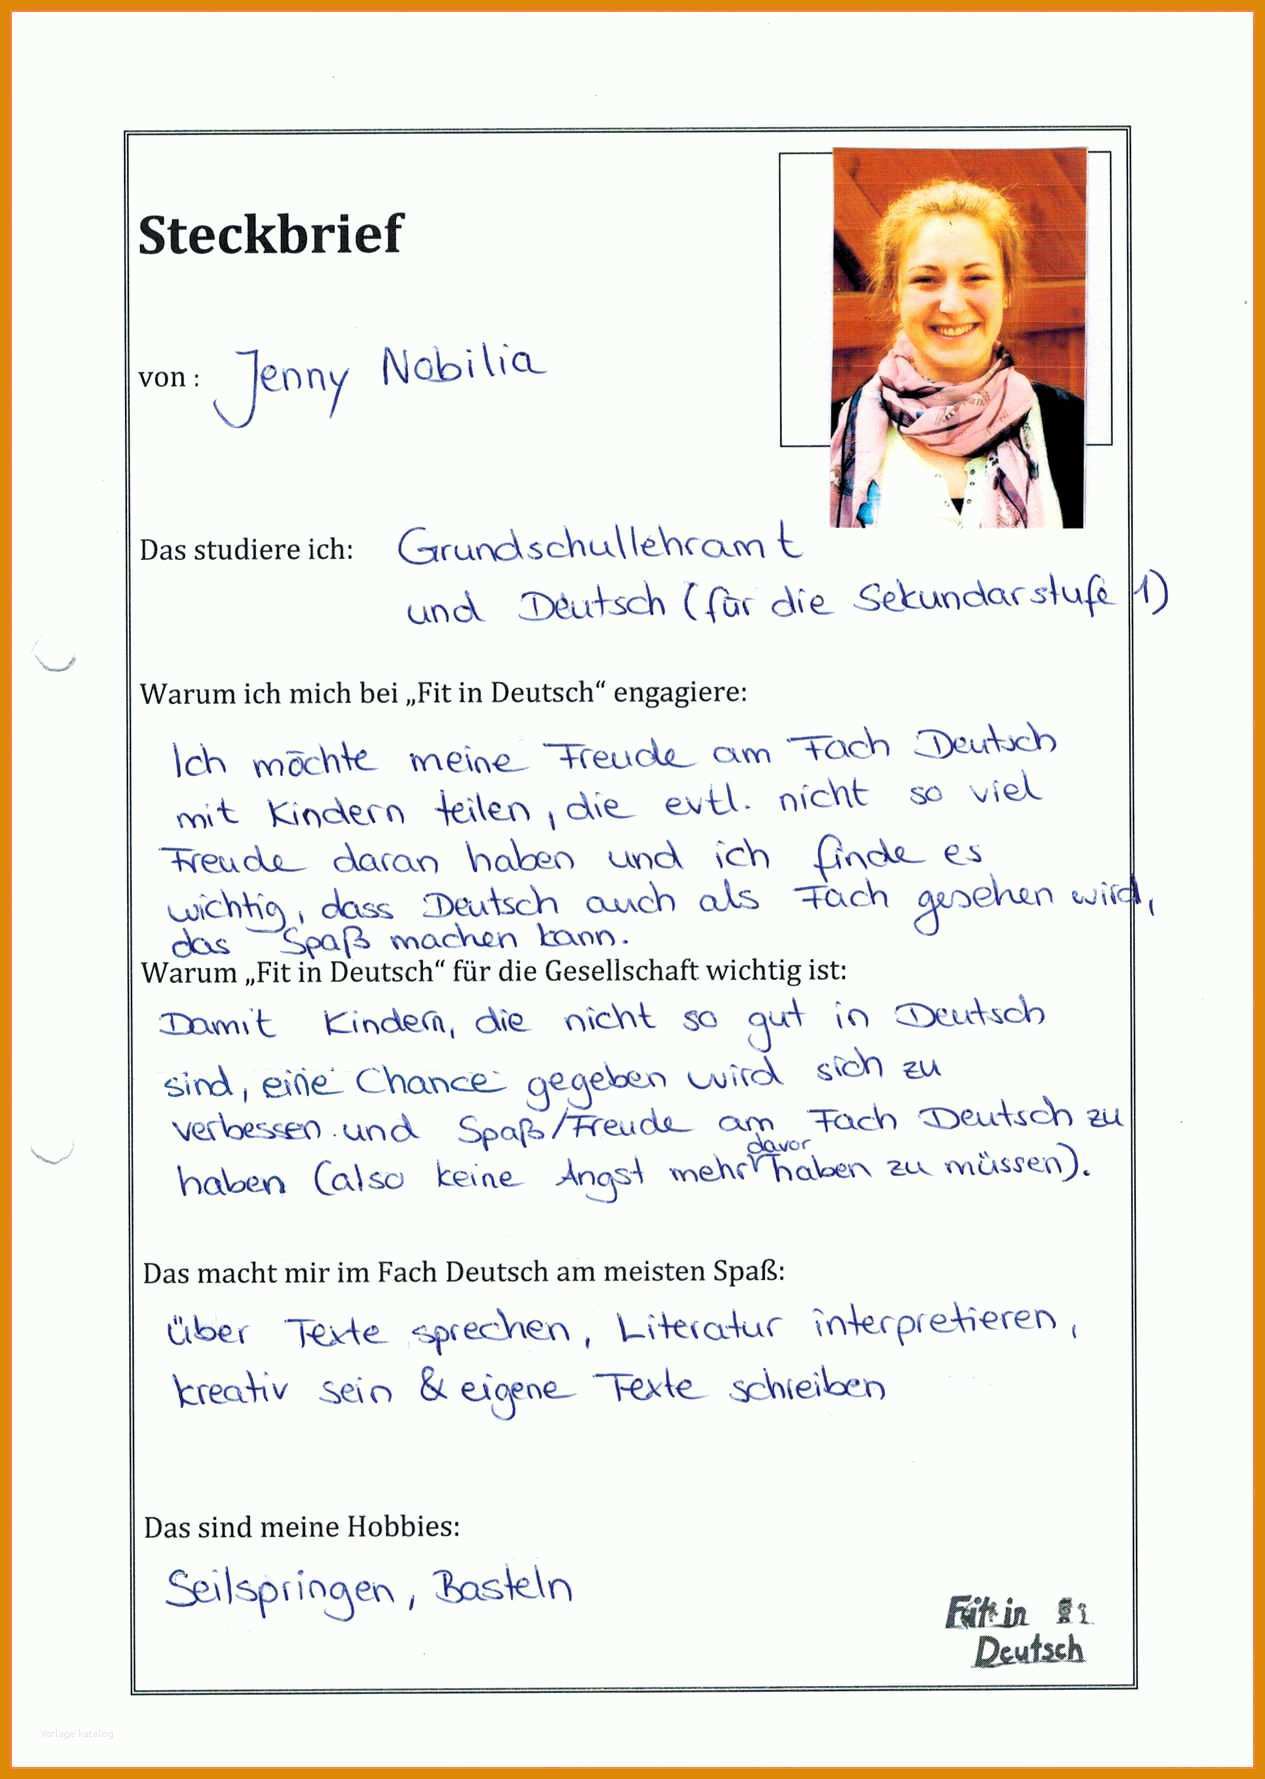 Steckbrief
von : Jenny Nobilia
Das studiere ich: Grundschullehramt
und Deutsch (für die Sekundarstufe 1)
Warum ich mich bei „Fit in Deutsch“ engagiere:
Ich möchte meine Freude am Fach Deutsch
mit Kindern teilen, die evtl. nicht so viel
Freude daran haben und ich finde es
wichtig, dass Deutsch auch als Fach gesehen wird,
das Spaß machen kann.
Warum „Fit in Deutsch“ für die Gesellschaft wichtig ist:
Damit Kindern, die nicht so gut in Deutsch
sind, eine Chance gegeben wird sich zu
verbessen und Spaß/Freude am Fach Deutsch zu
haben (also keine Angst mehr davor haben zu müssen).
Das macht mir im Fach Deutsch am meisten Spaß:
über Texte sprechen, Literatur interpretieren,
kreativ sein & eigene Texte schreiben
Das sind meine Hobbies:
Seilspringen, Basteln
Fit in
Deutsch
Vorlage katalog